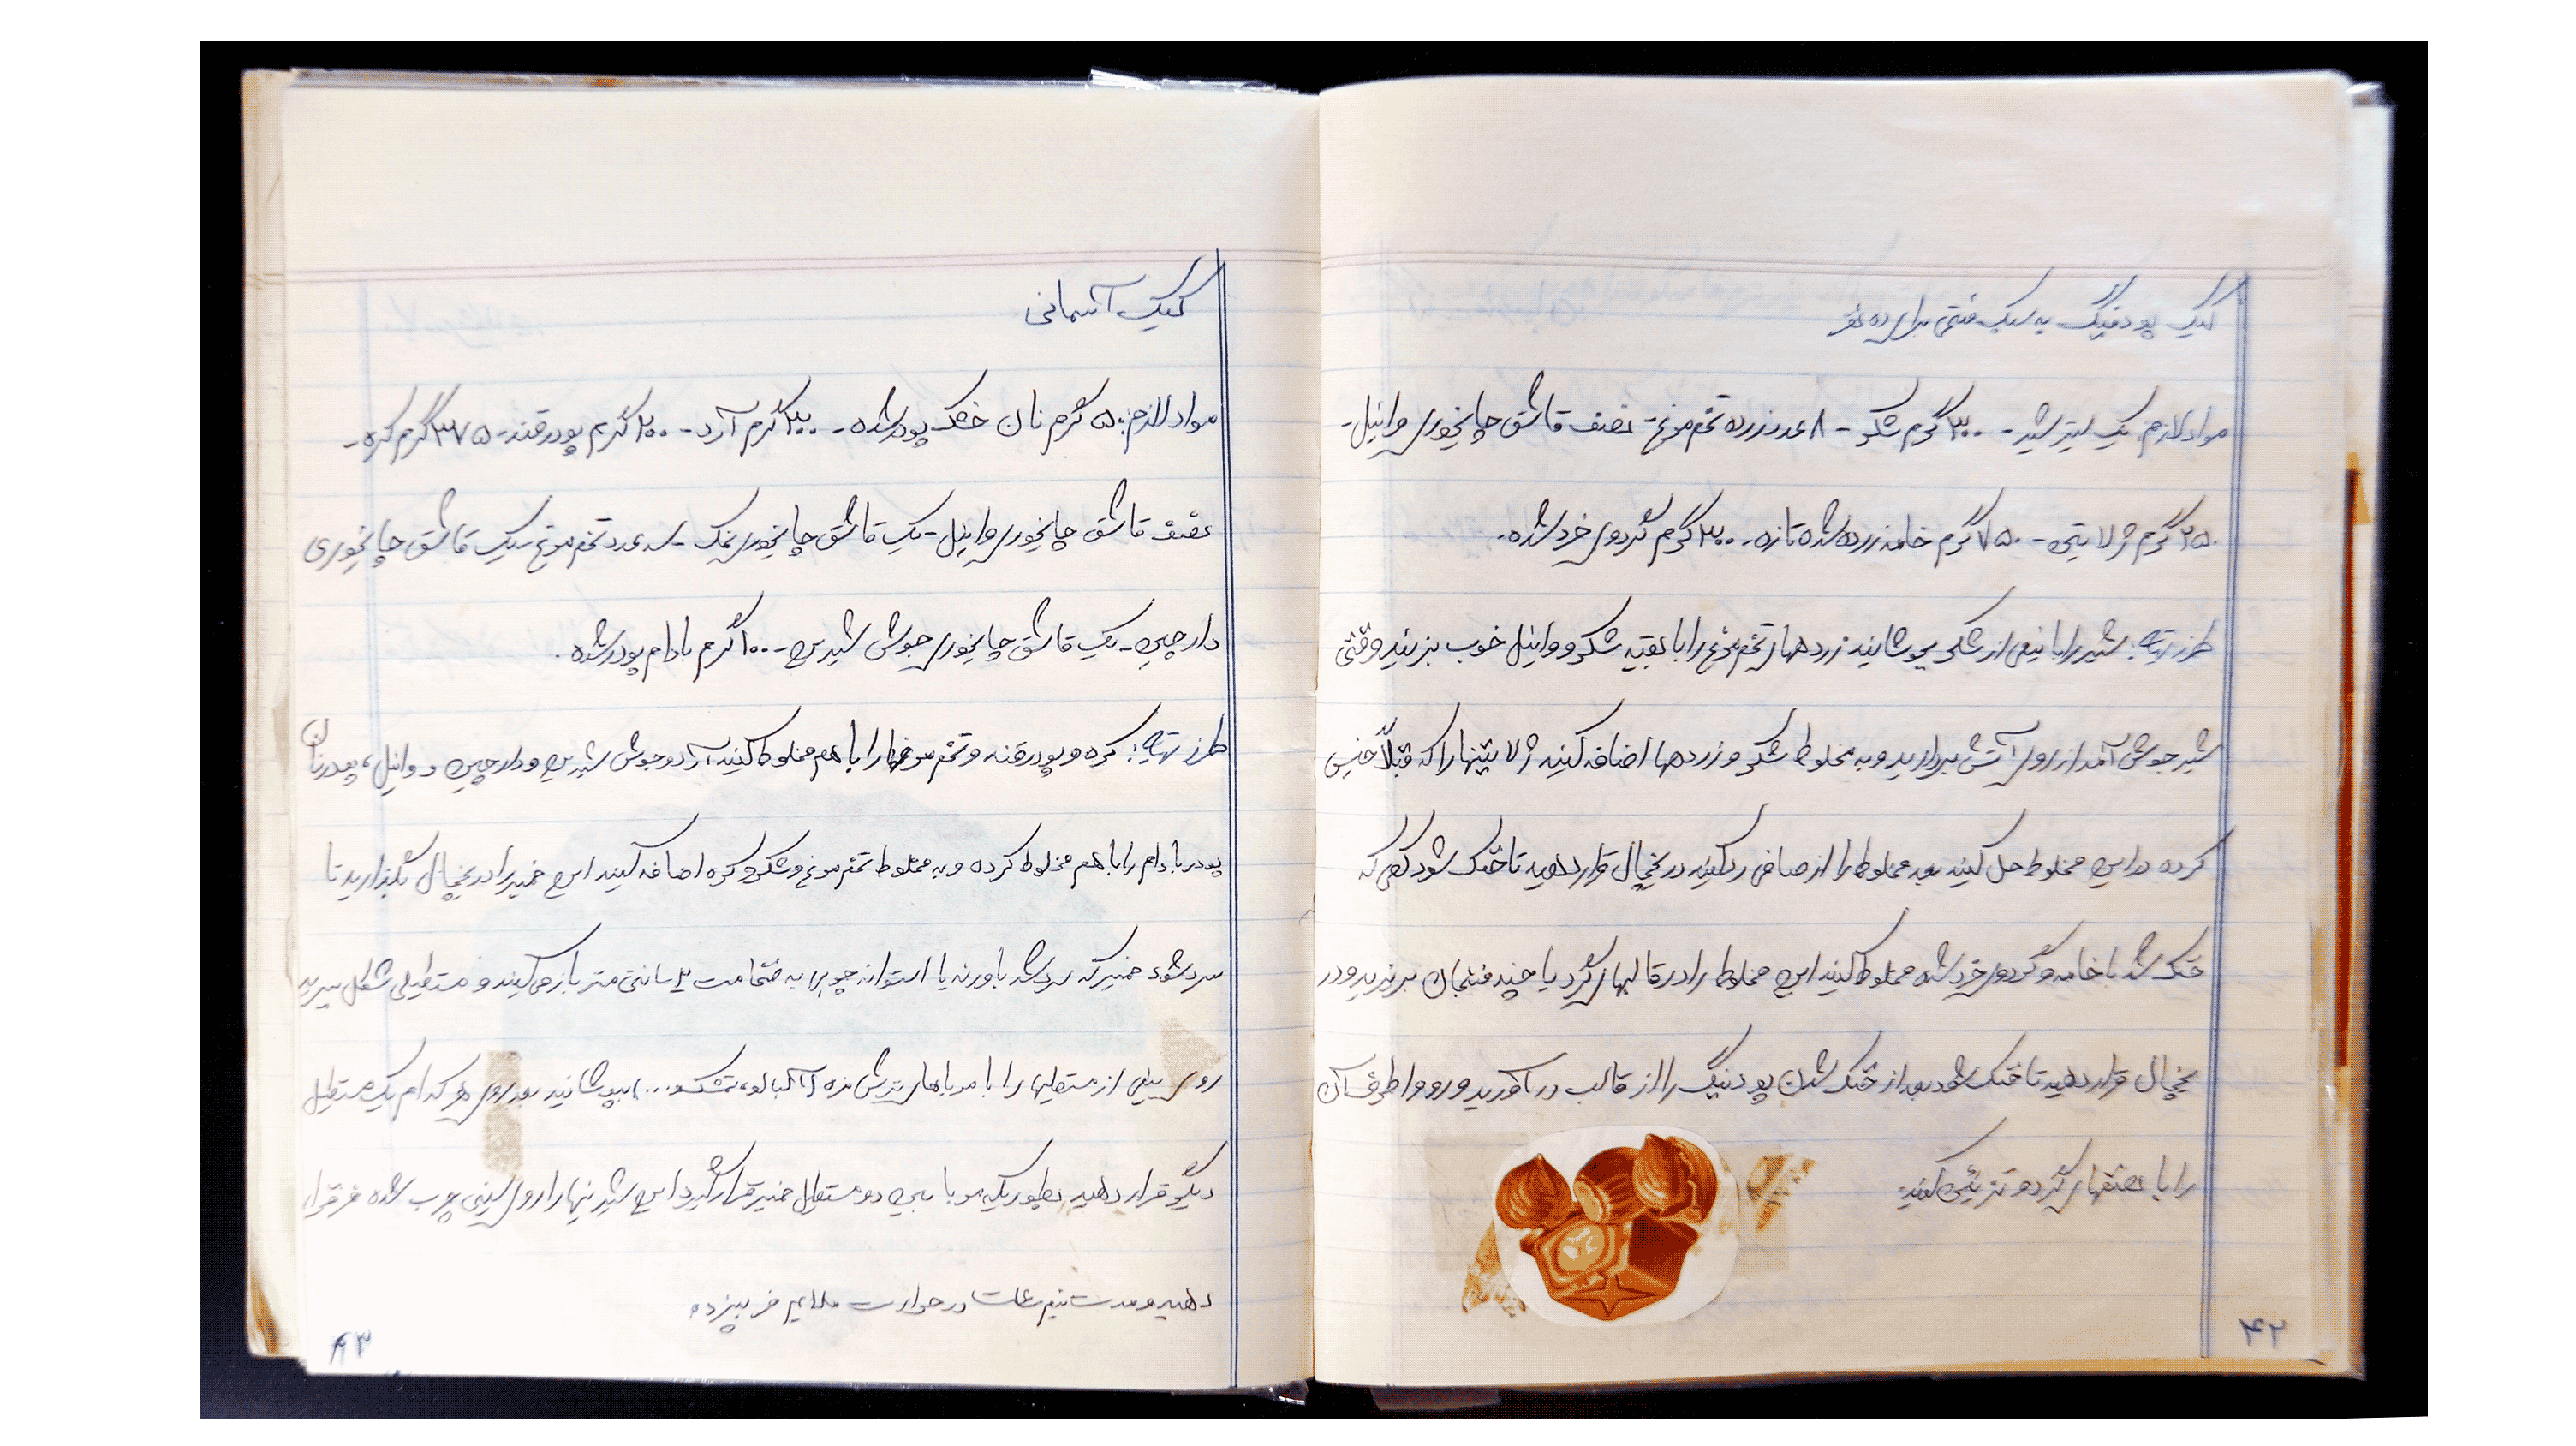 کیک پودینگ به سبک فنتی برای ده نفر
مواد لازم: یک لیتر شیر - ۳۰۰ گرم شکر - ۸ عدد زرده تخم مرغ - نصف قاشق چایخوری وانیل -
۲۵۰ گرم ژلاتین - ۷۵۰ گرم خامه زده شده تازه - ۳۰۰ گرم گردوی خرد شده.
طرز تهیه: شیر را با نیمی از شکر بجوشانید زرده های تخم مرغ را با بقیه شکر و وانیل خوب بزنید وقتی
شیر جوش آمد از روی آتش بردارید و به مخلوط شکر و زرده ها اضافه کنید ژلاتینها را که قبلاً خیس
کرده در این مخلوط حل کنید بعد مخلوط را از صافی رد کنید در یخچال قرار دهید تا خنک شود کمی که
خنک شد با خامه و گردوی خرد شده مخلوط کنید این مخلوط را در قالبهای گرد یا چند فنجان بریزید و در
یخچال قرار دهید تا خنک شود بعد از خنک شدن پودینگ را از قالب در آورید و رو و اطراف آن
را با نصفهای گردو تزئین کنید.
۴۲
کیک آسمانی
مواد لازم: ۵۰ گرم نان خشک پودر شده - ۳۰۰ گرم آرد - ۲۰۰ گرم پودر قند - ۳۷۵ گرم کره -
نصف قاشق چایخوری وانیل - یک قاشق چایخوری نمک - سه عدد تخم مرغ - یک قاشق چایخوری
دارچین - یک قاشق چایخوری جوش شیرین - ۱۰۰ گرم بادام پودر شده.
طرز تهیه: کره و پودر قند و تخم مرغها را با هم مخلوط کنید آرد و جوش شیرین و دارچین و وانیل، پودر نان
پودر بادام را با هم مخلوط کرده و به مخلوط تخم مرغ و شکر و کره اضافه کنید این خمیر را در یخچال بگذارید تا
سرد شود خمیر که سرد شد با وردنه یا استوانه چوبی به ضخامت ۲ سانتی متر باز می کنید و مستطیلی شکل ببرید
روی نیمی از مستطیلها را با مرباهای ترش مزه (آلبالو، تمشک و...) بپوشانید بعد روی هر کدام یک مستطیل
دیگر قرار دهید بطوریکه مربا بین دو مستطیل خمیر قرار گیرد این شیرینیها را روی سینی چرب شده فر قرار
دهید و مدت نیم ساعت در حرارت ملایم فر بپزد.
۴۳